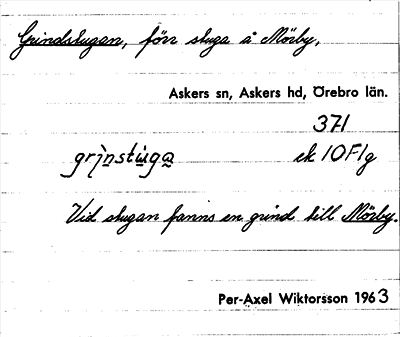 Grindstugan, förr stuga å Mörby,
Askers sn, Askers hd, Örebro län.
371
grinstùga ek 10F1g
Vid stugan fanns en grind till Mörby.
Per-Axel Wiktorsson 1963